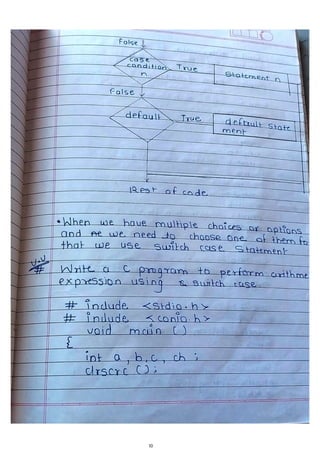 False
case
condition True
n
Statement n
False
default True
default State
ment
Rest of code
•When we have multiple choices or options
and we need to choose one of them fo
that we use switch case Statement
V.V
# Write a C program to perform arithme
expression using & switch case
# include <stdio.h>
# include <conio.h>
void main ()
{
int a, b, c, ch ;
clrscrc ();
10